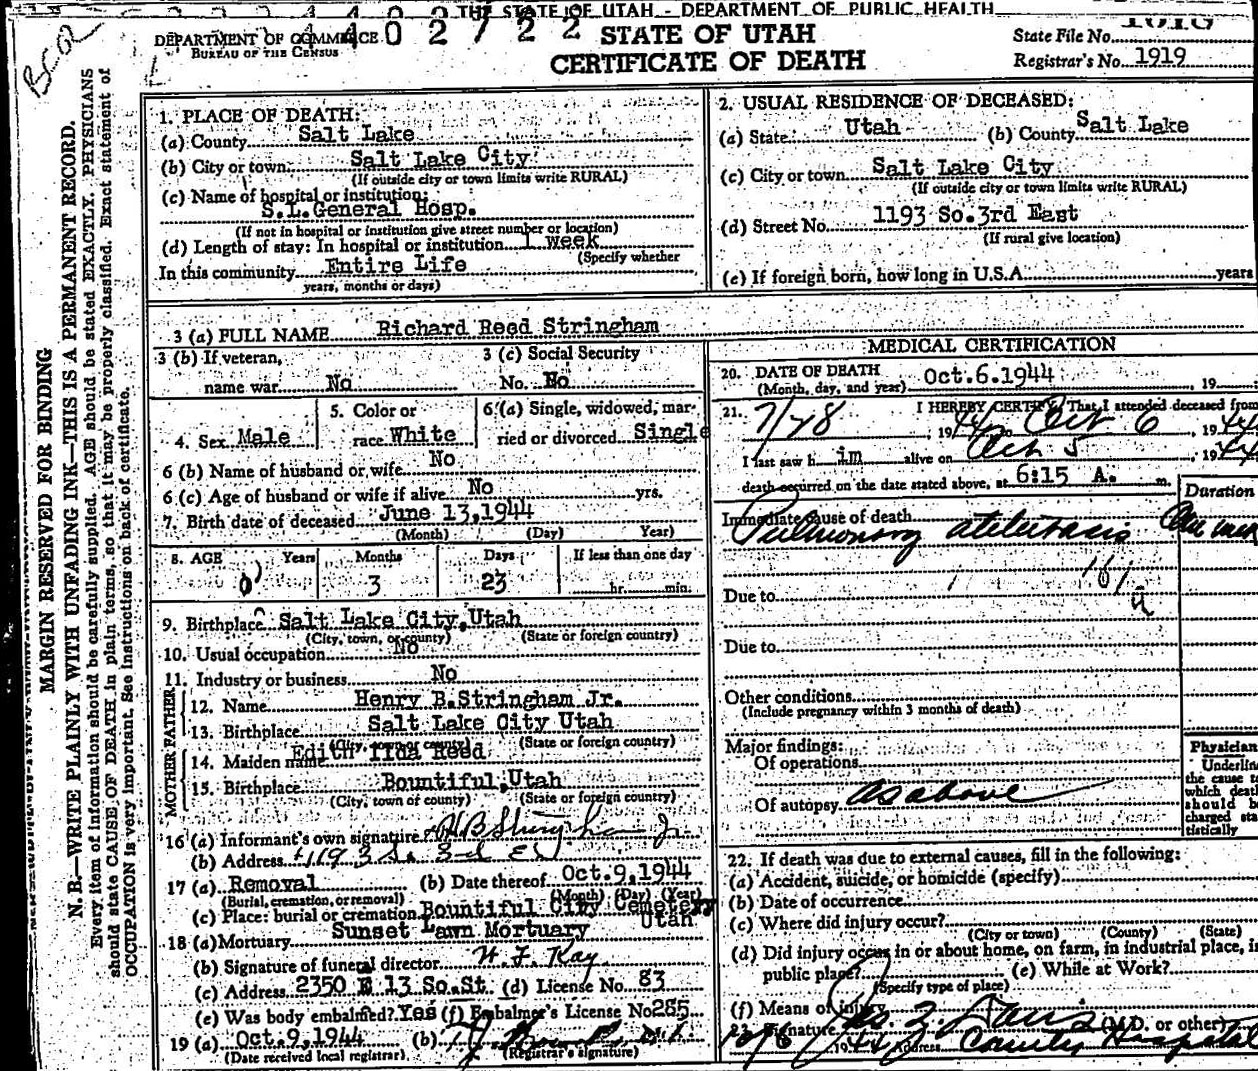 THE STATE OF UTAH - DEPARTMENT OF PUBLIC HEALTH
DEPARTMENT OF COMMERCE
BUREAU OF THE CENSUS
STATE OF UTAH
CERTIFICATE OF DEATH
State File No.
Registrar's No. 1919
MARGIN RESERVED FOR BINDING
N. B.—WRITE PLAINLY WITH UNFADING INK—THIS IS A PERMANENT RECORD.
Every item of information should be carefully supplied. AGE should be stated EXACTLY. PHYSICIANS
should state CAUSE OF DEATH in plain terms, so that it may be properly classified. Exact statement of
OCCUPATION is very important. See instructions on back of certificate.
1. PLACE OF DEATH:
(a) County Salt Lake
(b) City or town Salt Lake City
(If outside city or town limits write RURAL)
(c) Name of hospital or institution:
S.L.General Hosp.
(If not in hospital or institution give street number or location)
(d) Length of stay: In hospital or institution 1 week
(Specify whether
In this community Entire Life
years, months or days)
2. USUAL RESIDENCE OF DECEASED:
(a) State Utah (b) County Salt Lake
(c) City or town Salt Lake City
(If outside city or town limits write RURAL)
(d) Street No. 1193 So.3rd East
(If rural give location)
(e) If foreign born, how long in U.S.A. years
3 (a) FULL NAME Richard Reed Stringham
3 (b) If veteran,
name war No
3 (c) Social Security
No. No
4. Sex Male
5. Color or
race White
6 (a) Single, widowed, mar-
ried or divorced Single
6 (b) Name of husband or wife No
6 (c) Age of husband or wife if alive No yrs.
7. Birth date of deceased June 13,1944
(Month) (Day) Year)
8. AGE Years Months Days If less than one day
0 3 23 hr. min.
9. Birthplace Salt Lake City,Utah
(City, town, or county) (State or foreign country)
10. Usual occupation No
11. Industry or business No
FATHER
12. Name Henry B.Stringham Jr.
13. Birthplace Salt Lake City Utah
(City, town or county) (State or foreign country)
MOTHER
14. Maiden name Edith Ilda Reed
15. Birthplace Bountiful,Utah
(City, town or county) (State or foreign country)
16 (a) Informant's own signature H B Stringham Jr
(b) Address 1193 So. 3rd E
17 (a) Removal (b) Date thereof Oct.9,1944
(Burial, cremation, or removal) (Month) (Day) (Year)
(c) Place: burial or cremation Bountiful City Cemetery
Utah
18 (a) Mortuary Sunset Lawn Mortuary
(b) Signature of funeral director H. F. Kay
(c) Address 2350 E 13 So.St. (d) License No. 83
(e) Was body embalmed? Yes (f) Embalmer's License No 285
19 (a) Oct.9,1944 (b)
(Date received local registrar) (Registrar's signature)
MEDICAL CERTIFICATION
20. DATE OF DEATH
(Month, day, and year) Oct.6.1944 , 19
21. I HEREBY CERTIFY, That I attended deceased from
, 19 44 Oct 6 , 19 44
I last saw h im alive on Oct 5 , 19 44
death occurred on the date stated above, at 6:15 A. m.
Duration
Immediate cause of death
Pulmonary atelectasis
Due to
161a
Due to
Other conditions
(Include pregnancy within 3 months of death)
Major findings:
Of operations
Of autopsy as above
Physician
Underline
the cause to
which death
should be
charged sta-
tistically
22. If death was due to external causes, fill in the following:
(a) Accident, suicide, or homicide (specify)
(b) Date of occurrence
(c) Where did injury occur?
(City or town) (County) (State)
(d) Did injury occur in or about home, on farm, in industrial place, in
public place? (e) While at Work?
(Specify type of place)
(f) Means of injury
23. Signature Davis (M.D. or other)
10/6 19 44 Address County Hospital